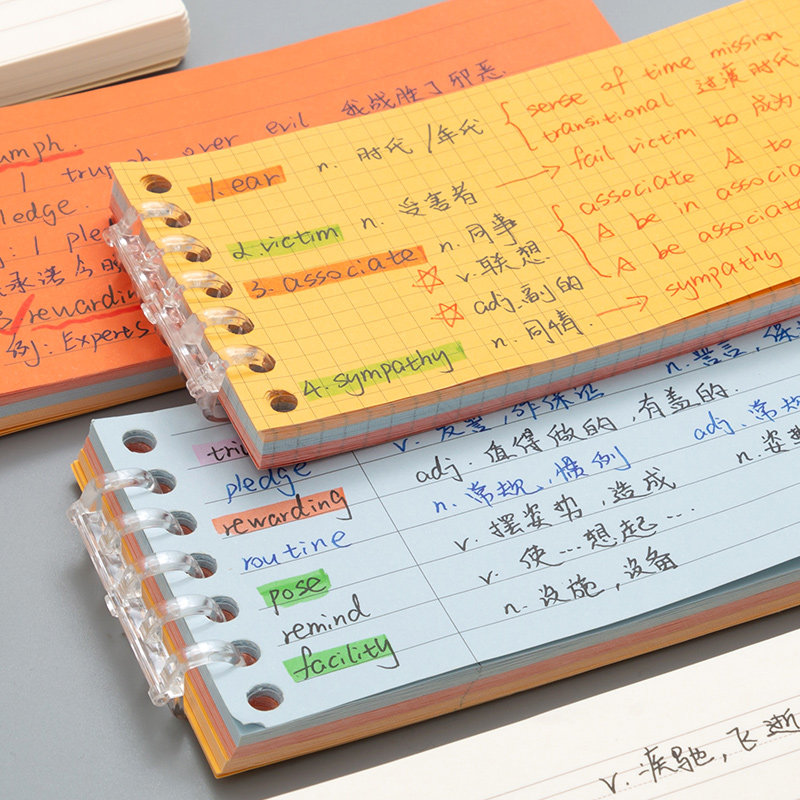 umph.
1 trumph over evil 我战胜了邪恶.
ledge.
: 1 ple
承诺今
rewardin
例: Experts
1. ear n. 时代/年代 { sense of time mission
transitional 过渡时代
2. victim n. 受害者 → fail victim to 成为
3. associate n. 同事 { associate A to
☆ v. 联想 A be in associa
☆ adj. 副的 A be associate
4. sympathy n. 同情. → sympathy
tri
pledge v. 发誓, 作保证 n. 誓言, 保
rewarding adj. 值得做的, 有益的.
routine n. 常规, 惯例 adj. 常规
pose v. 摆姿势, 造成 n. 姿势
remind v. 使...想起...
facility n. 设施, 设备
v. 疾驰, 飞逝